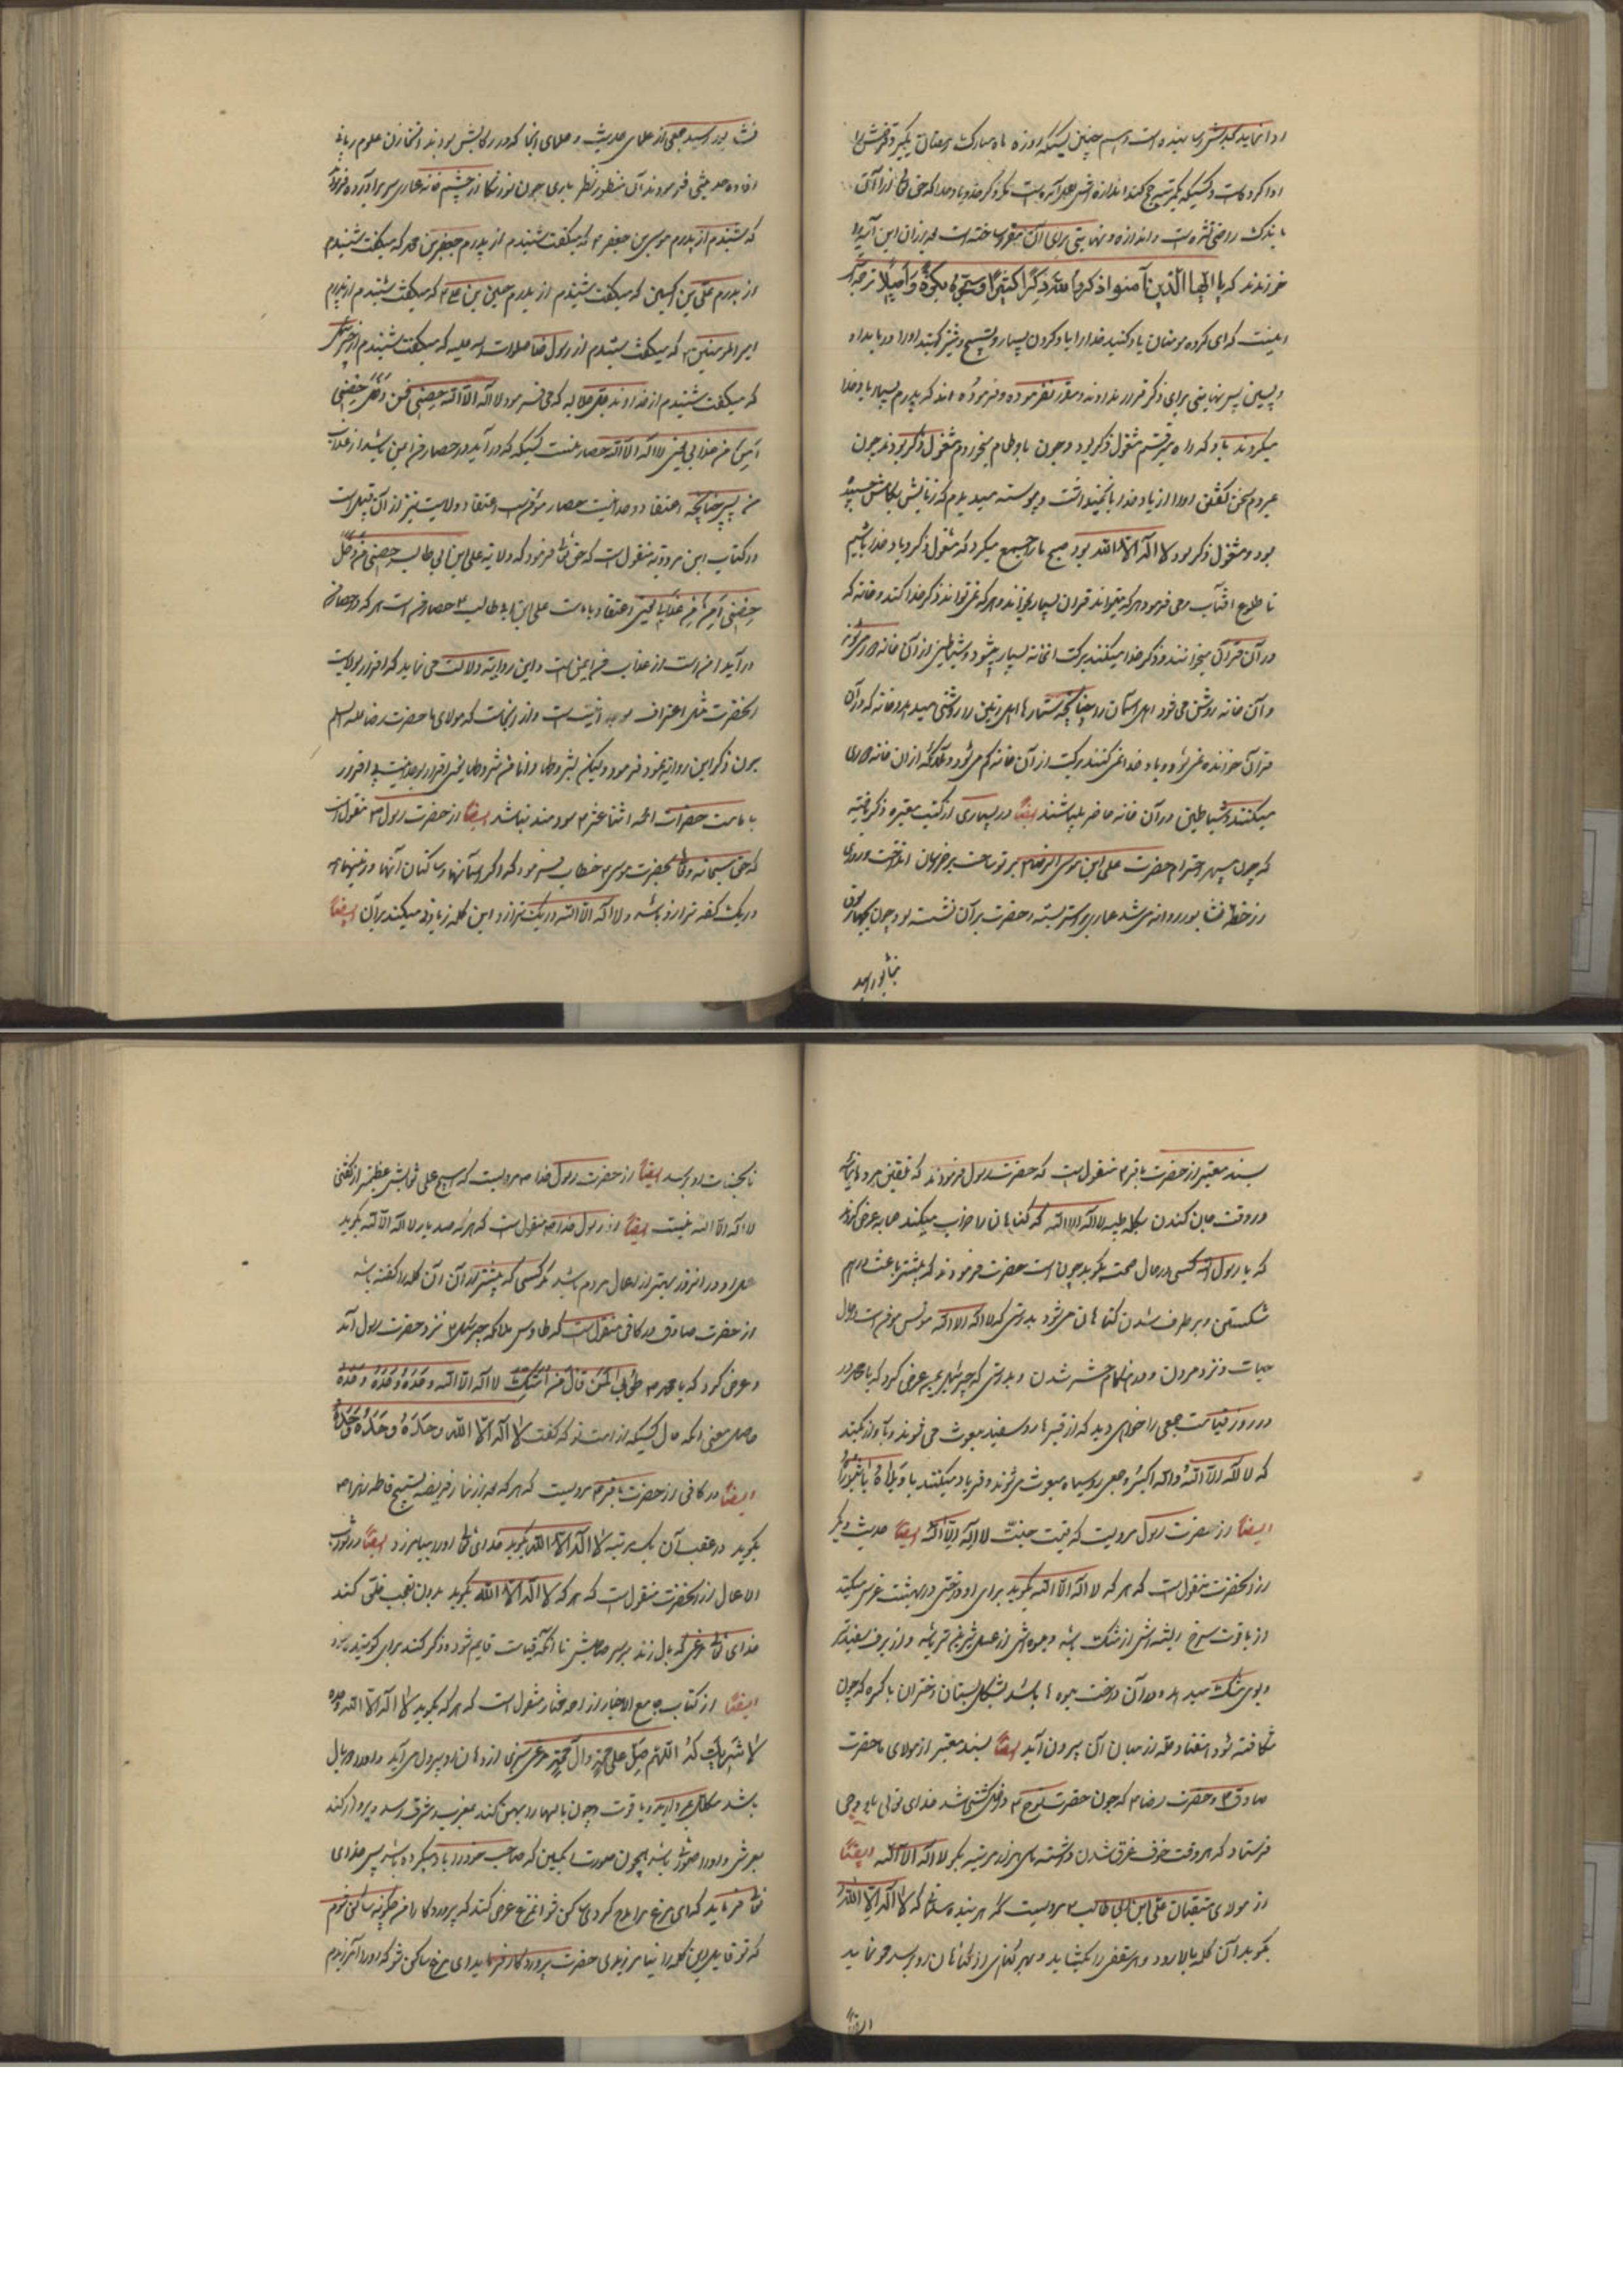 ادا نماید بحدش رسانیده است و اسم چنین کسیکه روزه ماه مبارک رمضان بگیرد فرضش را
ادا کرده است و کسیکه یکمرتبه حج کند اندازه اش بعمل آمده است مگر ذکر خدا و یاد خدا که حق تعالی از آن
باندک راضی نشده است و اندازه و نهایتی برای آن مقرر ساخته است بعد از آن این آیه را
خواندند که یا ایها الذین آمنوا اذکروا الله ذکرا کثیرا و سبحوه بکرة و اصیلا ترجمه اش
اینست که ای گروه مومنان یاد کنید خدا را یاد کردن بسیار و تسبیح و تنزیه کنید او را در بامداد
و پسین پس نهایتی برای ذکر قرار نداده و مقرر نفرموده و فرموده اند که پدرم بسیار یاد خدا
میکردند با او که راه میرفتم مشغول ذکر بود و چون با او طعام میخوردم مشغول ذکر بودند چون
مردم سخن گفتن او را از یاد خدا باز نمیداشت و پیوسته میدیدم که زبانش بکامش چسبیده
بود و مشغول ذکر بود لا اله الا الله بود صبح ما را جمع میکرد که مشغول ذکر و یاد خدا باشیم
تا طلوع افتاب و می فرمود هر که میتواند قران بسیار بخواند و هر که نمیتواند ذکر خدا کند و خانه که
در آن قرآن میخوانند و ذکر خدا میکنند برکت انخانه بسیار میشود و شیاطین از آن خانه دوری کنند
و آن خانه روشنی می دهد اهل آسمان را چنانچه ستارها اهل زمین را روشنی میدهد و خانه که در آن
قران خوانده نمی شود و یاد خدا نمی کنند برکت از آن خانه کم می شود و ملائکه از ان خانه دوری
میکنند و شیاطین در آن خانه حاضر میباشند ایضا در بسیاری از کتب معتبره ذکر یافته
که چون سپهر احترام حضرت علی ابن موسی الرضا ع پرتو ساحت بر خراسان انداخت و روزی
از خطه نشابور روانه می شد عماری بر استر بسته و حضرت بر آن نشسته بود چون بچهار سوق
نشابور رسید
نشابور رسید جمعی از علمای حدیث و علمای انجا که در رکابش بودند از مخازن علوم ربانی
افاده حدیثی فرمودند آن منظور نظر باری چون نور نگاه از چشم خانه عماری سر برآورده فرمود
که شنیدم از پدرم موسی بن جعفر ع که میگفت شنیدم از پدرم جعفر بن محمد که میگفت شنیدم
از پدرم علی بن الحسین که میگفت شنیدم از پدرم حسین بن علی ع که میگفت شنیدم از پدرم
امیر المومنین ع که میگفت شنیدم از رسول خدا صلوات الله علیه که میگفت شنیدم از جبرئیل
که میگفت شنیدم از خداوند جل جلاله که می فرمود لا اله الا الله حصنی فمن دخل حصنی
امن من عذابی یعنی لا اله الا الله حصار منست کسیکه که درآید در حصار من ایمن باشد از عذاب
من پس چنانچه اعتقاد وحدانیت حصار مؤمن است اعتقاد ولایت نیز از آن قبیل است
در کتاب ابن مردویه منقول است که حق تعالی فرمود که ولایة علی ابن ابی طالب حصنی فمن دخل
حصنی امن من عذابی یعنی اعتقاد بامامت علی ابن ابی طالب ع حصار من است هر که در حصار من
درآید امن است از عذاب من ایمن است و این روایت دلالت می نماید که اقرار بولایت
انحضرت مثل اعتراف بوحدانیت است و از اینجاست که مولای ما حضرت رضا علیه السلم
چون ذکر این روایت نمود فرمود ولیکن بشروطها و انا من شروطها یعنی اقرار بوحدانیت بی اقرار
بامامت حضرات ائمه اثنا عشر ع سودمند نباشد ایضا از حضرت رسول ص منقول است
که حق سبحانه و تعالی بحضرت موسی ع خطاب فرمود که اگر آسمانها و ساکنان آنها و زمینها همه
در یک کفه ترازو باشد و لا اله الا الله در یک ترازو این کلمه زیادتی میکند بر آن ایضا
بسند معتبر از حضرت باقر ع منقول است که حضرت رسول فرمودند که تلقین مردهای
در وقت جان کندن بکلمه طیبه لا اله الا الله که گناهان را خراب میکند صحابه عرض کردند
که یا رسول الله کسی در حال صحت بگوید چون است حضرت فرمودند که بیشتر باعث درهم
شکستن و برطرف شدن گناهان می شود بدرستی که لا اله الا الله مونس مؤمن است در حال
حیات و نزد مردن و در هنگام حشر شدن و بدرستی که جبرئیل بمن عرض کرد که یا محمد در
در روز قیامت جمعی را خواهی دید که از قبرها رو سفید مبعوث می شوند و باواز بلند
که لا اله الا الله والله اکبر و جمعی روسیاه مبعوث می شوند و فریاد میکنند یا ویلاه یا ثبوراه
ایضا از حضرت رسول مرویست که قیمت جنت لا اله الا الله ایضا حدیث دیگر
از انحضرت منقول است که هر که لا اله الا الله بگوید برای او درختی در بهشت غرس میکنند
از یاقوت سرخ ریشه اش از مشک باشد و میوه اش از عسل شیرینتر باشد و از برف سفیدتر
و بوی مشک میدهد و در آن درخت میوه ها باشد بشکل پستان دختران باکره که چون
شکافته شود هفتاد حله از میان آن بیرون آید ایضا بسند معتبر از مولای ما حضرت
صادق ع و حضرت رضا ع که چون حضرت نوح ع داخل کشتی شد خدای تعالی باو وحی
فرستاد که هر وقت خوف غرق شدن داشته باشی هزار مرتبه بگو لا اله الا الله ایضا
از مولای متقیان علی ابن ابی طالب ع مرویست که هر بنده مسلمانی که لا اله الا الله
بگوید آن کلمه بالا رود و هر سقفی را بشکافد و بهر گناهی از گناهان او برسد محو نماید
تا بحسنات او برسد ایضا از حضرت رسول خدا ص مرویست که هیچ عملی ثوابش عظیمتر از گفتن
لا اله الا الله نیست ایضا از رسول خدا ص منقول است که هر که صد بار لا اله الا الله بگوید
عمل او در انروز بهتر از اعمال مردم باشد مگر کسی که بیشتر از آن آن کلمه را گفته باشد
از حضرت صادق در کافی منقول است که طاوس ملائکه جبرئیل ع نزد حضرت رسول آمد
و عرض کرد که یا محمد ص طوبی لمن قال من امتک لا اله الا الله وحده وحده وحده
حاصل معنی انکه حال کسیکه از امت تو که گفت لا اله الا الله وحده وحده وحده
ایضا در کافی از حضرت باقر ع مرویست که هر که بعد از نماز فریضه تسبیح فاطمه زهرا ع
بگوید و در عقب آن یک مرتبه لا اله الا الله بگوید خدای تعالی او را بیامرزد ایضا در ثواب
الاعمال از انحضرت منقول است که هر که لا اله الا الله بگوید بدون تعجب خلق کند
خدای تعالی مرغی که بال زند بر سر صاحبش تا انکه قیامت قایم شود و ذکر کند برای گوینده
ایضا از کتاب جامع الاخبار از احمد مختار منقول است که هر که بگوید لا اله الا الله وحده
لا شریک له اللهم صل علی محمد و آل محمد مرغی سبزی از دهان او بیرون می آید و او را دو بال
باشد مکلل بمروارید و یاقوت و چون بالها را پهن کند بمغرب و مشرق رسد و پرواز کند
بعرش و او را صوتی باشد همچون صورت انگبین که صاحب خود را یاد میکرده باشد پس خدای
تعالی فرماید که ای مرغ مرا مدح کردی ساکن شو انمرغ عرض کند که پروردگارا من چگونه ساکن شوم
که تو قایل این کلمه را نیامرزیدی حضرت پروردگار فرماید ای مرغ ساکن شو که او را آمرزیدم